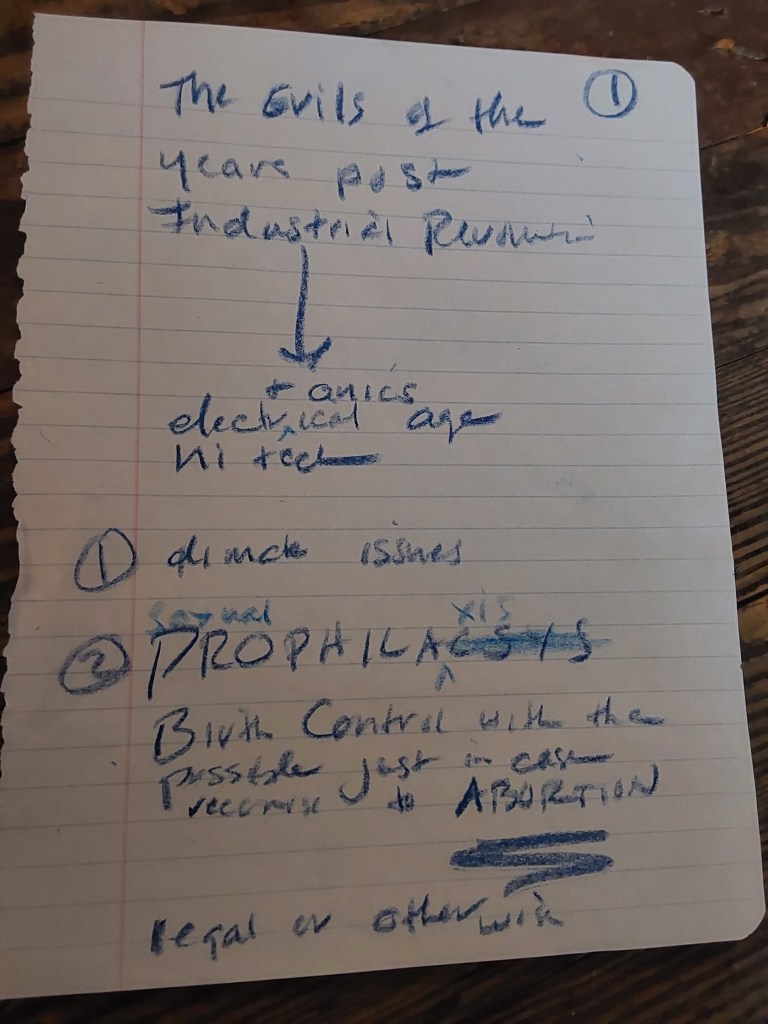 The Evils of the ①
years post
Industrial
electrical age
Hi tech
① climate issues
Sexual xis
② PROPHILA
Birth Control with the
possible just in case
recourse to ABORTION
legal or otherwise